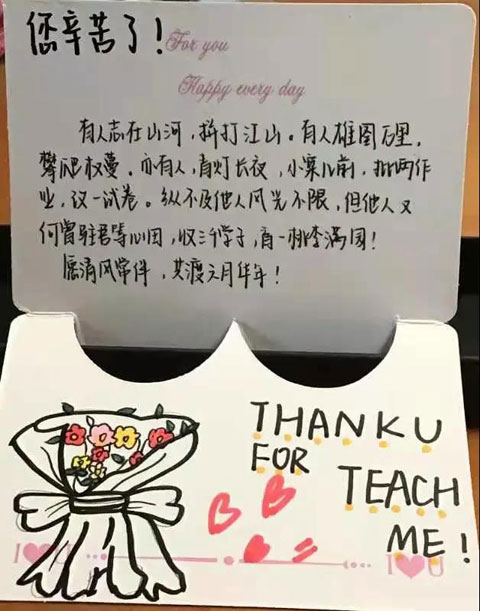 您辛苦了!
For you
Happy every day
有人志在山河,拼打江山。有人雄图万里,
攀爬权蔓。亦有人,青灯长夜,小案几前,批两作
业,议一试卷。纵不及他人风光不限,但他人又
何曾驻君等心田,收三个学子,育一桃李满园!
愿清风常伴,共渡六月华年!
THANK U
FOR
TEACH
ME!
I U
I U